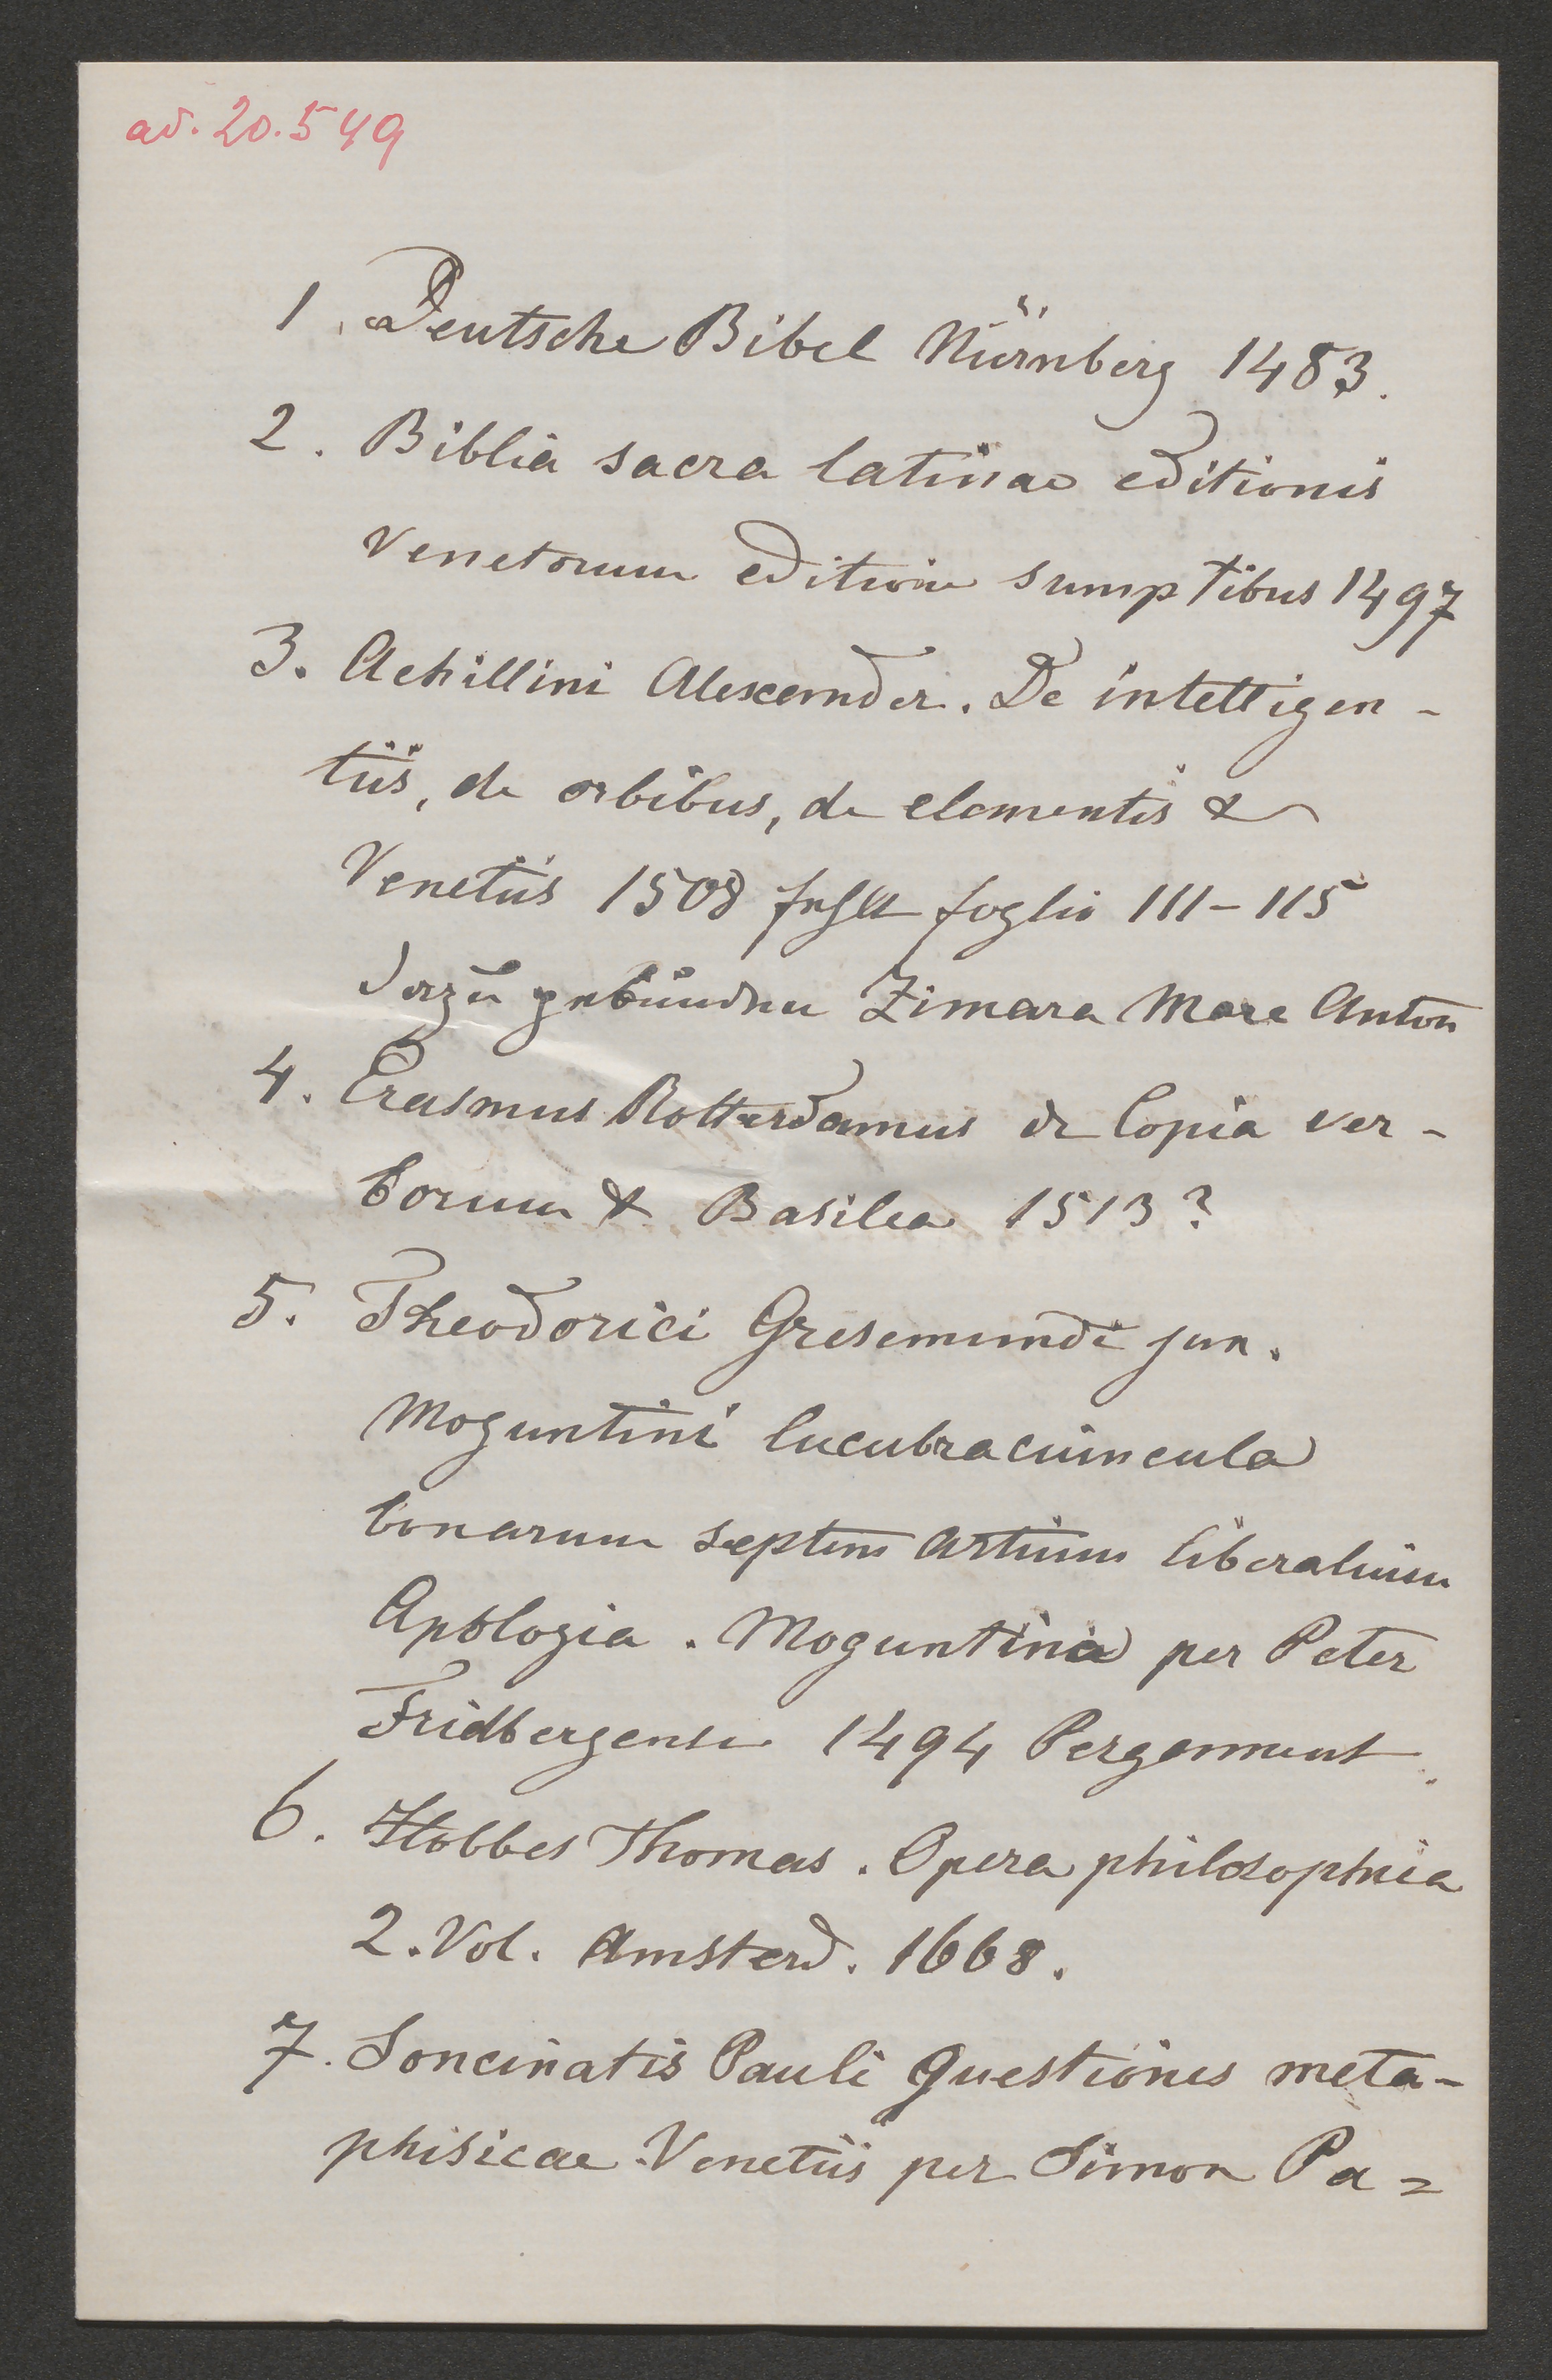 ad. 20.549
1. Deutsche Bibel Nürnberg 1483.
2. Biblia sacra latinae editionis
Venetorum editione sumptibus 1497
3. Achillini Alexander. De intelligen-
tiis, de orbibus, de elementis &
Venetiis 1508 fehlt foglio 111-115
dazu gebunden Zimara Marc Anton
4. Erasmus Rotterdamus de Copia ver-
borum & Basilea 1513?
5. Theodorici Gresemundi jun.
Moguntini lucubraciuncula
bonarum septem artium liberalium
Apologia. Moguntina per Peter
Fridbergense 1494 Pergament.
6. Hobbes Thomas. Opera philosophica
2. Vol. Amsterd. 1668.
7. Soncinatis Pauli Questiones meta-
phisicae Venetiis per Simon Pa=